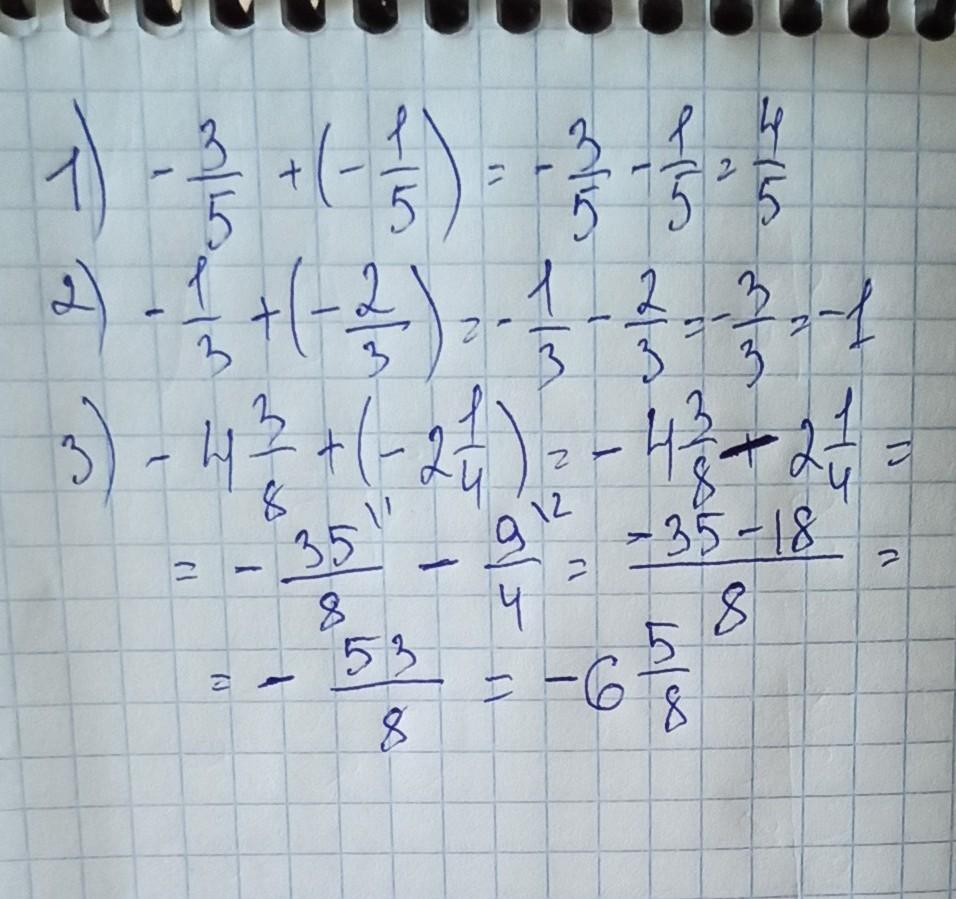 1) - 3/5 + (- 1/5) = - 3/5 - 1/5 = 4/5
2) - 1/3 + (- 2/3) = - 1/3 - 2/3 = - 3/3 = -1
3) - 4 3/8 + (- 2 1/4) = - 4 3/8 - 2 1/4 =
= - 35\1/8 - 9\2/4 = -35-18/8 =
= - 53/8 = -6 5/8